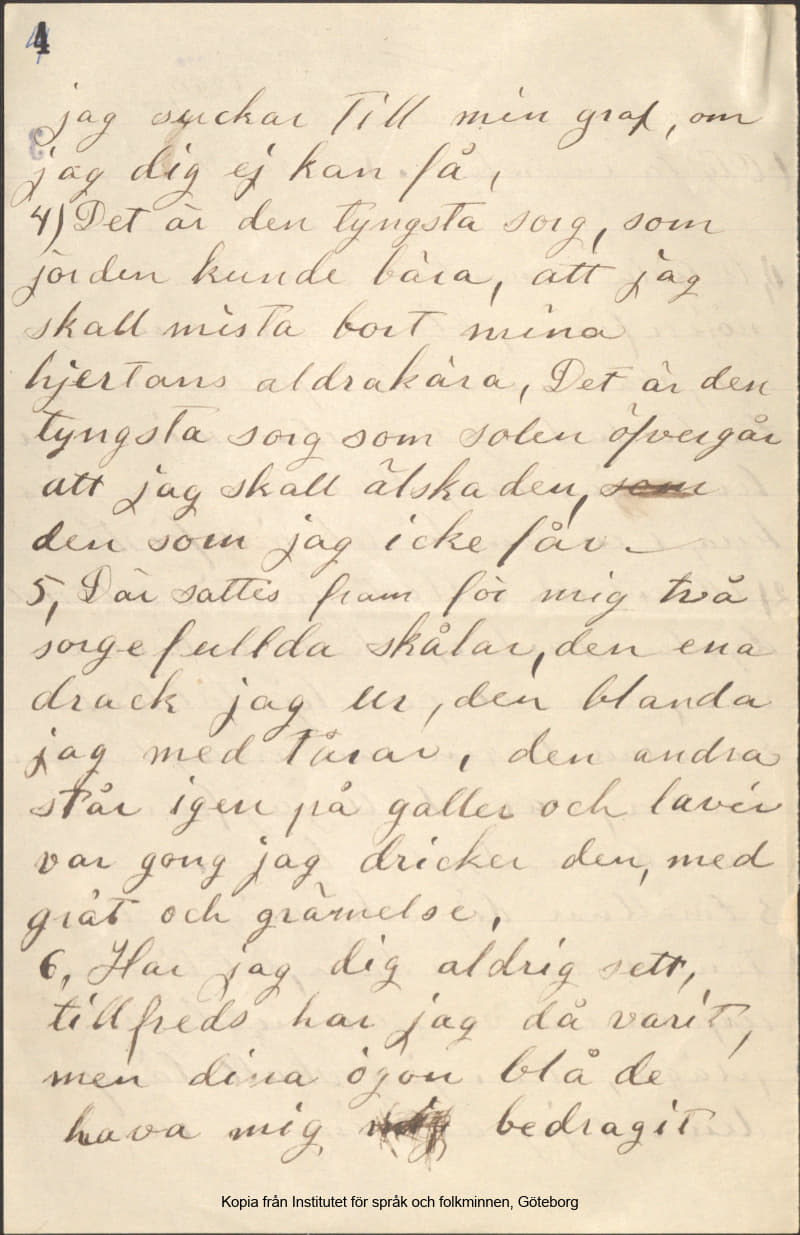 4
jag suckar till min graf, om
jag dig ej kan få,
4) Det är den tyngsta sorg, som
jorden kunde bära, att jag
skall mista bort mina
hjertans aldrakära, Det är den
tyngsta sorg som solen öfvergår
att jag skall älska den, som
den som jag icke får –
5, Där sattes fram för mig två
sorgefullda skålar, den ena
drack jag ur, den blanda
jag med tårar, den andra
står igen på galler och laver
var gong jag dricker den, med
gråt och grämelse,
6, Har jag dig aldrig sett,
tillfreds har jag då varit,
men dina ögon blå de
hava mig mig bedragit
Kopia från Institutet för språk och folkminnen, Göteborg